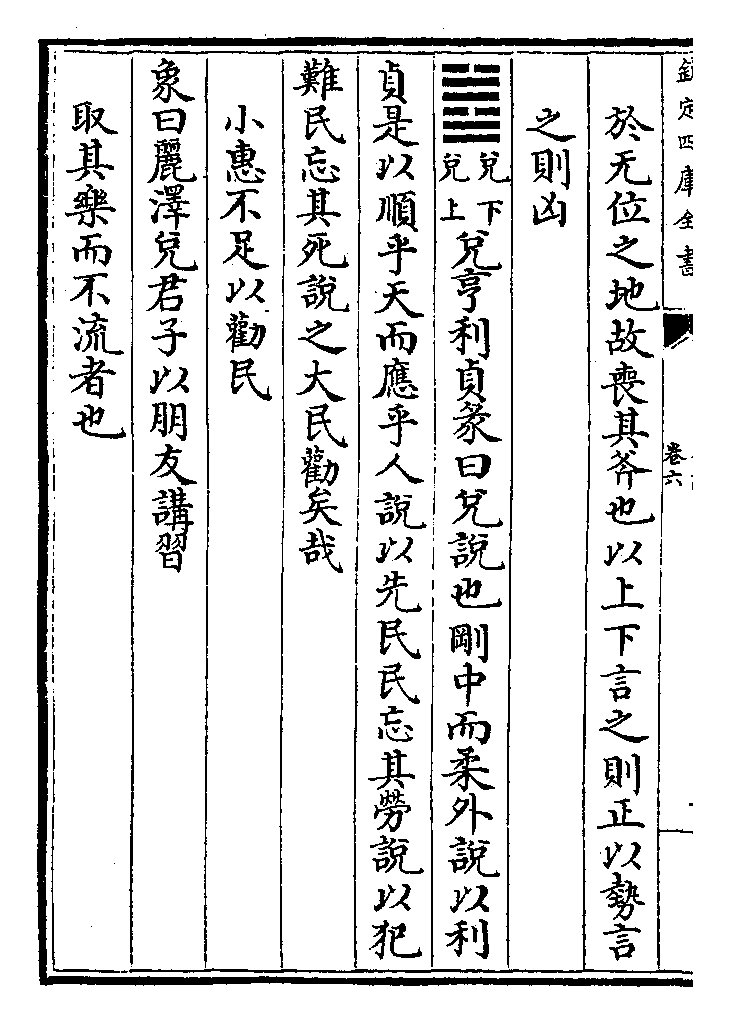 欽定四庫全書
卷六
於无位之地故喪其斧也以上下言之則正以勢言
之則凶
兌下
兌上
兌亨利貞彖曰兌說也剛中而柔外說以利
貞是以順乎天而應乎人說以先民民忘其勞說以犯
難民忘其死說之大民勸矣哉
小惠不足以勸民
象曰麗澤兌君子以朋友講習
取其樂而不流者也